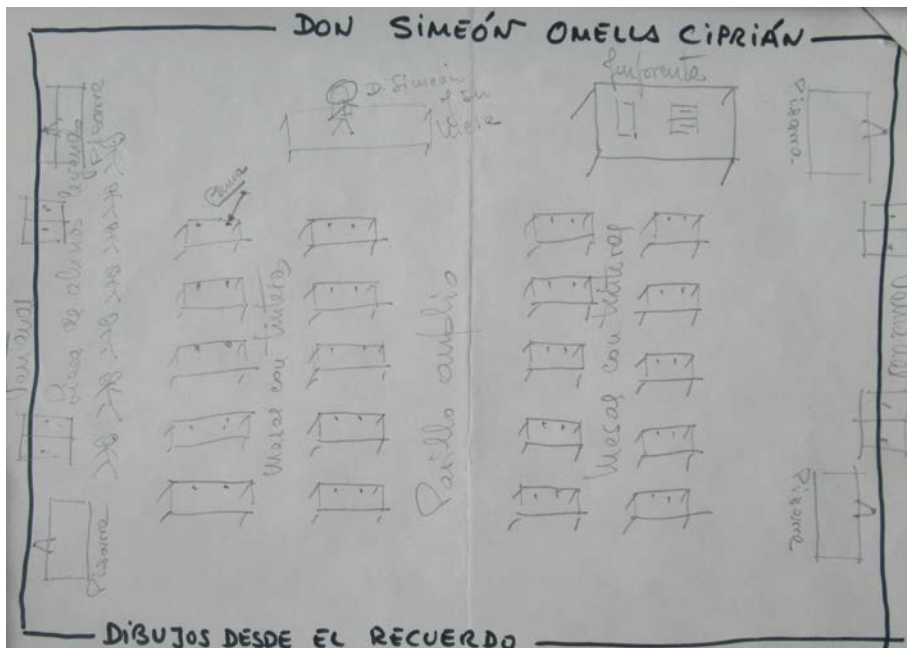 DON SIMEÓN OMELLA CIPRIÁN
D. Simeón
y su
Mesa
Pizarra
Pizarra
Línea de alumnos leyendo
Ventana
Pluma
Mesas con tintero
Pasillo amplio
Mesas con tinteros
Ventana
Pizarra
Pizarra
DIBUJOS DESDE EL RECUERDO